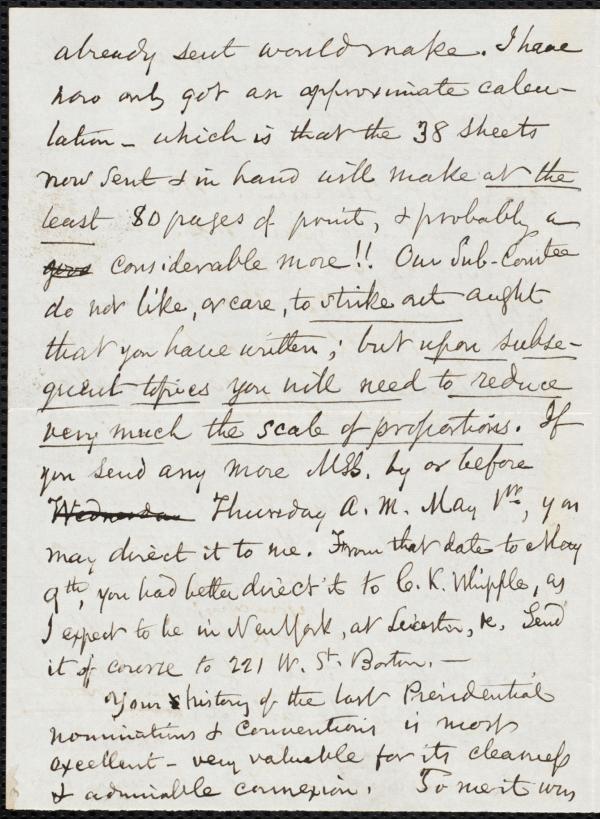 already sent would make. I have
now only got an approximate calcu-
lation - which is that the 38 sheets
now sent & in hand will make at the
least 80 pages of print, & probably a
considerable more!! Our Sub-Comtee
do not like, or care, to strike out aught
that you have written; but upon subse-
quent topics you will need to reduce
very much the scale of proportions. If
you send any more MSS. by or before
Wednesday Thursday A.M. May 1st, you
may direct it to me. From that date to May
9th, you had better direct it to C. K. Whipple, as
I expect to be in New York, at Leicester, &c. Send
it of course to 221 W. St. Boston. -
Your history of the last Presidential
nominations & Conventions is most
excellent - very valuable for its clearness
& admirable connexion. To me it was